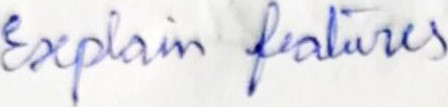 Explain features